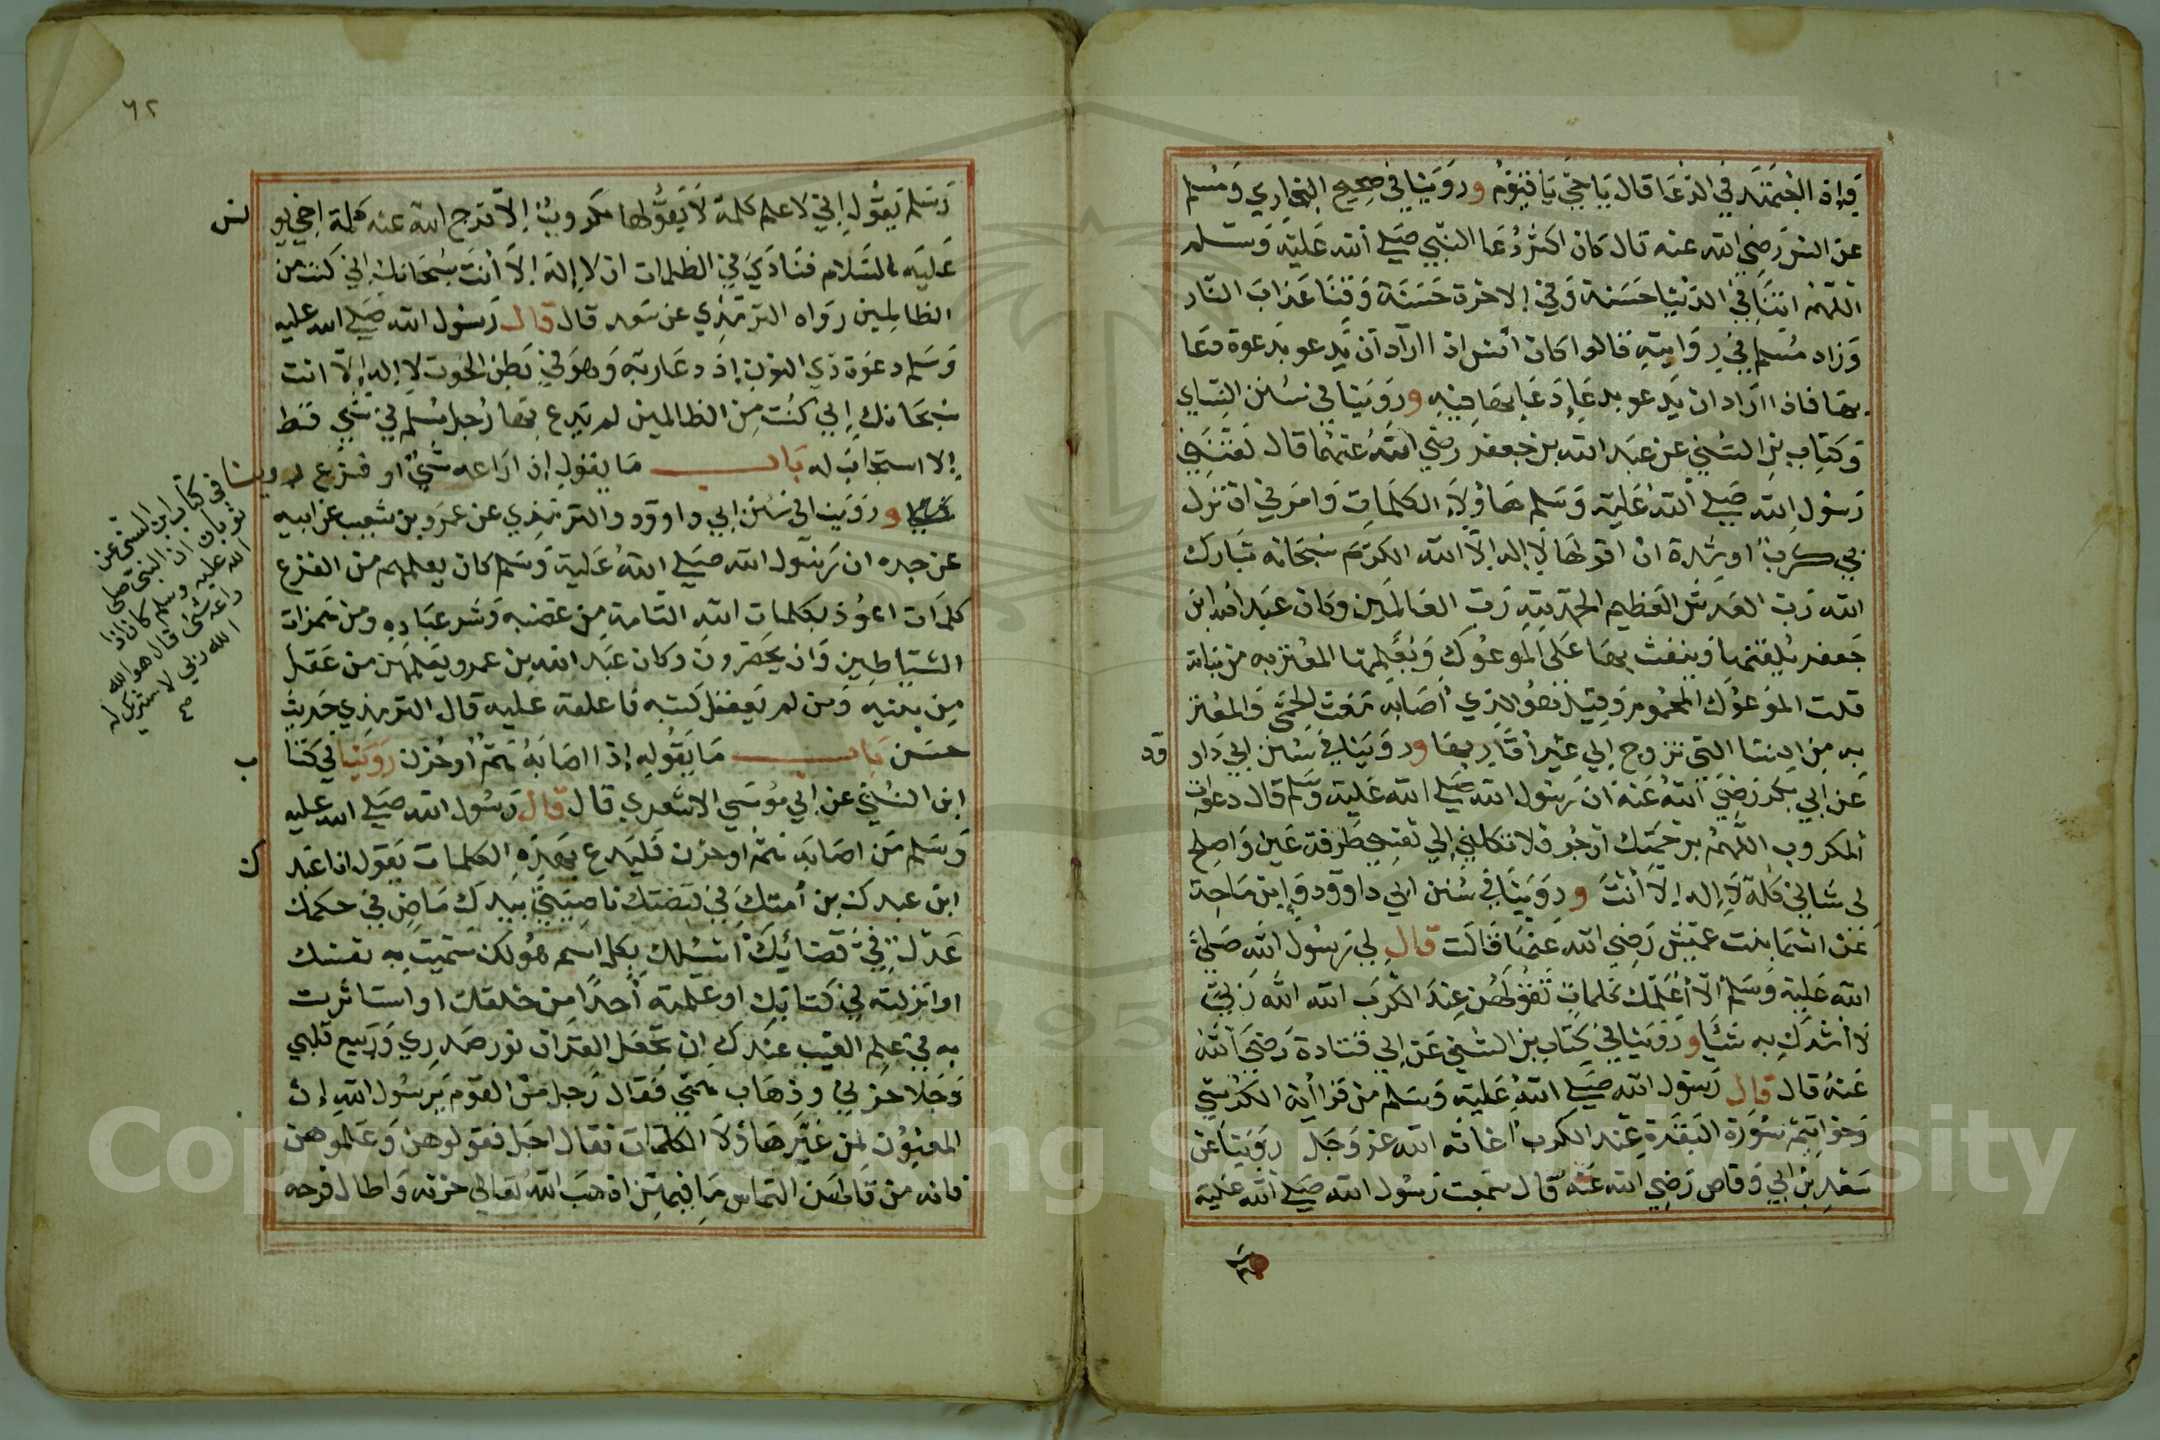 وَإذا اجتَهَد في الدعَا قال يَا حَيّ يَا قيّوم وروَينا في صحِيح البخاري وَمُسلم
عن انس رَضي الله عنه قال كان اكثر دُعَا النبي صَلي الله عَليْه وَسَلم
اللهُمّ اتِنَا في الدنيا حَسَنة وَفي الاخرة حَسَنَة وَقِنَا عَذابَ النار
وَزاد مُسلم في رِوَايته قالوا كان انس اذا اراد أن يَدعو بدَعوة دعَا
بهَا فاذا ارَاد ان يَدعو بدعَاءٍ دَعَا بهَا فيْهِ وروَينا في سُنن النسَاي
وَكتاب بن السُني عن عَبد الله بن جعفر رضي اللهُ عنهُما قال لقنَنِي
رَسُول الله صَلي اللهُ عَليْه وَسَلم هَاؤلاءِ الكلمَاتِ وَامَرني ان نزل
بي كربٌ او شِدة ان اقولهَا لا اله الا الله الكرِيَم سُبحَانه تبَارك
الله رَبّ العَرشِ العَظيم الحمد لله رَبّ العَالمين وَكان عَبد الله ابن
جَعفر يُلقنهَا وَينفث بهَا عَلى الموعُوك وَيُعَلمهَا المغتربه من بناته
قلت الموعُوك المحمُوم وَقيْل هُو الذي أصَابه مَغث الحمّى وَالمغتر
به من النسَا التي تزوج الي غير أقَاربهَا وروَينا في سُنن ابي دَاو
ود
عَن ابي بكر رَضيَ اللهُ عَنهُ انَ رَسُول الله صَلي الله عَليْه وَسَلم قال دعوَات
المكروب اللهُمّ برَحمَتِك أرجُو فلا تكلني إلي نفسِي طَرفة عَين وَاصلح
لي شاني كله لا إله الا أنتَ وروَينَا في سُنن ابي داوود وَابن مَاجة
عَن اسْمَا بنت عميْس رَضي الله عنهَا قالت قال لي رَسُول الله صَليّ
الله عَليْه وَسَلم الا أُعَلّمك كلمَاتٍ تَقولهُن عِندَ الكربِ الله الله رَبيّ
لا أشركُ به شيَأً وروَينا في كتاب بن السُني عَن ابي قتادة رَضيَ الله
عَنهُ قال قال رَسُول الله صَلي اللهُ عَليْه وَسَلم من قرا أية الكرسِي
وَخواتيم سُورَة البَقرة عِند الكرب أغاثه الله عز وَجَل روَينا عَن
سَعْد بن ابي وَقاص رَضي الله عَنهُ قال سَمعت رَسُول الله صَلي الله عَليه
وَسَلم يَقُول إني لاعلم كلمة لا يَقُولها مكروبٌ إلا فرج الله عنه كلمة اخي يو
نس
عَليْه السَلام فنَادَي في الظلمات ان لا إله الا أنتَ سُبحَانك إني كنت من
الظالمين رَوَاه الترمذي عن سَعد قال قال رَسُول الله صَلي الله عليه
وَسَلم دعوَة ذي النون إذ دعَا ربّه وَهوَ في بَطن الحُوت لا إله إلا انت
سُبحَانك إني كنْت مِن الظالمين لم يدع بهَا رَجل مُسلم في شَي قط
إلا استجَابَ له بَاب مَا يقول إذا رَاعه شَيٌ او فزع روينا
وروَينا في سُنن ابي داوود والترمذي عن عَمرو بن شعيب عن ابيه
عن جده ان رَسُول الله صَلي اللهُ عَليْه وَسَلم كان يعلمهم من الفزع
كلمَات اعوُذ بكلمات اللهِ التامة مِن غضبه وَشر عبَادِه ومن همزات
الشياطين وَان يحضرون وكان عَبد الله بن عمرو يَعلمهن من عَقل
مِن بنيه وَمن لم يَعقل كتبه فاعلقه عليه قال الترمذي حَديثٌ
حسَن بَاب مَا يَقُوله إذا اصَابَهُ هَمٌّ أو حُزن روَينا في كتا
ب
ابن السُني عن ابي مُوسَي الاشعري قال قال رَسُول الله صَلي الله عليه
وَسَلم مَن اصَابَه هَمّ او حزن فليَدع بهَذِهِ الكلمات يَقول انا عَبد
ك
ابن عبدك بن أمتك في قبضتك ناصِيَتي بيدك مَاضٍ في حكمك
عَدل في قضائِك أسْئلك بكل اسم هُو لك سَميت به نفسك
او انزلته في كتابك او علمته أحدًا من خلقك او استاثرت
به في علم الغيْب عندك ان تَجعَل القرآن نور صَدري وَرَبيع قلبي
وَجَلا حزني وذهَاب هَمّي فقال رَجل من القوم يَرسُول اللهِ إن
المغبُون لمن غبن هَاؤلا الكلمَات فقال اجَل فقولوهن وَعَلموهن
فانه من قالهُن التماس مَا فيهِن اذهبَ اللهُ تعَالي حزنه وَاطال فرحه
في كتاب ابن السني عن
ثوبان ان النبي صلى
الله عليه وسلم كان اذا
راعه شي قال هو الله
الله ربي لا شريك له
صح
٦٢
Copyright © King Saud University
1957